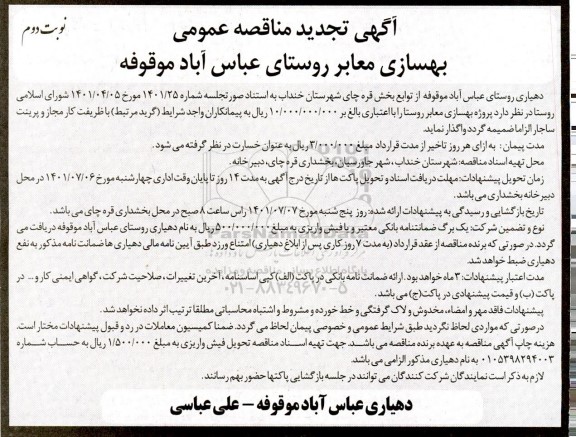 آگهی تجدید مناقصه عمومی
نوبت دوم
بهسازی معابر روستای عباس آباد موقوفه
دهیاری روستای عباس آباد موقوفه از توابع بخش قره چای شهرستان خنداب به استناد صورتجلسه شماره ۱۴۰۱/۲۵ مورخ ۱۴۰۱/۰۴/۰۵ شورای اسلامی
روستا در نظر دارد پروژه بهسازی معابر روستا را با اعتباری بالغ بر ۱۰/۰۰۰/۰۰۰/۰۰۰ ریال به پیمانکاران واجد شرایط (گرید مرتبط) با ظرفیت کار مجاز و پرینت
ساجار الزاما ضمیمه گردد واگذار نماید.
مدت پیمان: به ازای هر روز تاخیر از مدت قرارداد مبلغ ۳/۰۰۰/۰۰۰ ریال به عنوان خسارت در نظر گرفته می شود.
محل تهیه اسناد مناقصه: شهرستان خنداب، شهر جاورسیان، بخشداری قره چای، دبیرخانه.
زمان تحویل پیشنهادات: مهلت دریافت اسناد و تحویل پاکت ها از تاریخ درج آگهی به مدت ۱۴ روز تا پایان وقت اداری چهارشنبه مورخ ۱۴۰۱/۰۷/۰۶ در محل
دبیرخانه بخشداری می باشد.
تاریخ بازگشایی و رسیدگی به پیشنهادات ارائه شده: روز پنج شنبه مورخ ۱۴۰۱/۰۷/۰۷ راس ساعت ۸ صبح در محل بخشداری قره چای می باشد.
نوع و تضمین شرکت: یک برگ ضمانتنامه بانکی معتبر و یا فیش واریزی به مبلغ ۵۰۰/۰۰۰/۰۰۰ ریال به نام دهیاری روستای عباس آباد موقوفه دریافت می
گردد. در صورتی که برنده مناقصه از عقد قرارداد (به مدت ۷ روز کاری پس از ابلاغ دهیاری) امتناع ورزد طبق آیین نامه مالی دهیاری ها ضمانت نامه مذکور به نفع
دهیاری ضبط خواهد شد.
مدت اعتبار پیشنهادات: ۳ ماه خواهد بود. ارائه ضمانت نامه بانکی در پاکت (الف) کپی اساسنامه، آخرین تغییرات، صلاحیت شرکت، گواهی ایمنی کار و... در
پاکت (ب) و قیمت پیشنهادی در پاکت(ج) می باشد.
پیشنهادات فاقد مهر و امضاء، مخدوش و لاک گرفتگی و خط خورده و مشروط و اشتباه محاسباتی مطلقا ترتیب اثر داده نخواهد شد.
در صورتی که مواردی لحاظ نگردید طبق شرایط عمومی و خصوصی پیمان لحاظ می گردد. ضمنا کمیسیون معاملات در رد و قبول پیشنهادات مختار است.
هزینه چاپ آگهی مناقصه به عهده برنده مناقصه می باشد. جهت تهیه اسناد مناقصه تحویل فیش واریزی به مبلغ ۱/۵۰۰/۰۰۰ ریال به حساب شماره
۰۱۰۵۳۹۸۲۹۴۰۰۳ به نام دهیاری مذکور الزامی می باشد.
لازم به ذکر است نمایندگان شرکت کنندگان می توانند در جلسه بازگشایی پاکتها حضور بهم رسانند.
دهیاری عباس آباد موقوفه – علی عباسی
۰۲۱-۸۸۳۴۹۶۷۰-۵